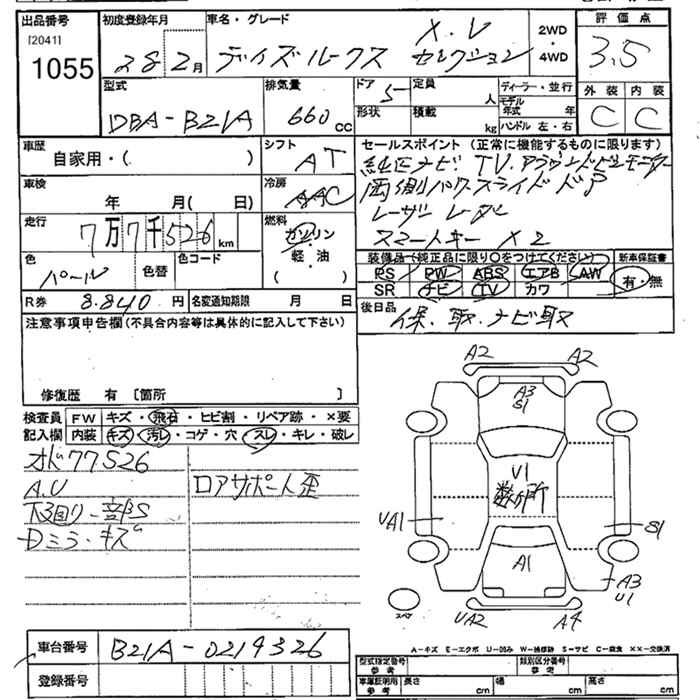 出品番号 初度登録年月 車名・グレード 2WD・4WD 評価点
[2041] 1055 28 2月 デイズルークス X.V セレクション 3.5
型式 排気量 ドア 定員 ディーラー・並行 外装 内装
DBA-B21A 660cc 5 人 モデル年式 年 C C
形状 積載 kg ハンドル 左・右
車歴 シフト セールスポイント (正常に機能するものに限ります)
自家用・( ) AT 純正ナビ TV アラウンドビューモニター
車検 冷房 両側パワースライドドア
年 月( 日) AAC レーザーレーダー
走行 燃料 スマートキー X2
7万7千526km ガソリン・軽・油 ( )
色 色替 色コード 装備品(純正品に限り○をつけてください) 新車保証書
パール PS PW ABS エアB AW 有・無
SR ナビ TV カワ
R券 8.840円 名変通知期限 月 日 後日品
保.取.ナビ取
注意事項申告欄(不具合内容等は具体的に記入して下さい)
修復歴 有 〔箇所 〕
検査員 FW キズ・飛石・ヒビ割・リペア跡・×要
記入欄 内装 キズ・汚レ・コゲ・穴・スレ・キレ・破レ
オド77526
A.U ロアサポート歪
下回り一部S
Dミラーキズ
A2 A2
A3
S1
U1
数ヶ所
UA1 S1
A1
A3
U1
スペア UA2 A4
車台番号 B21A-0219326
登録番号
A-キズ E-エクボ U-凹み W-補修跡 S-サビ C-腐食 XX-交換済
型式指定番号 参考 類別区分番号 参考
車庫証明用 参考 長さ cm 幅 cm 高さ cm